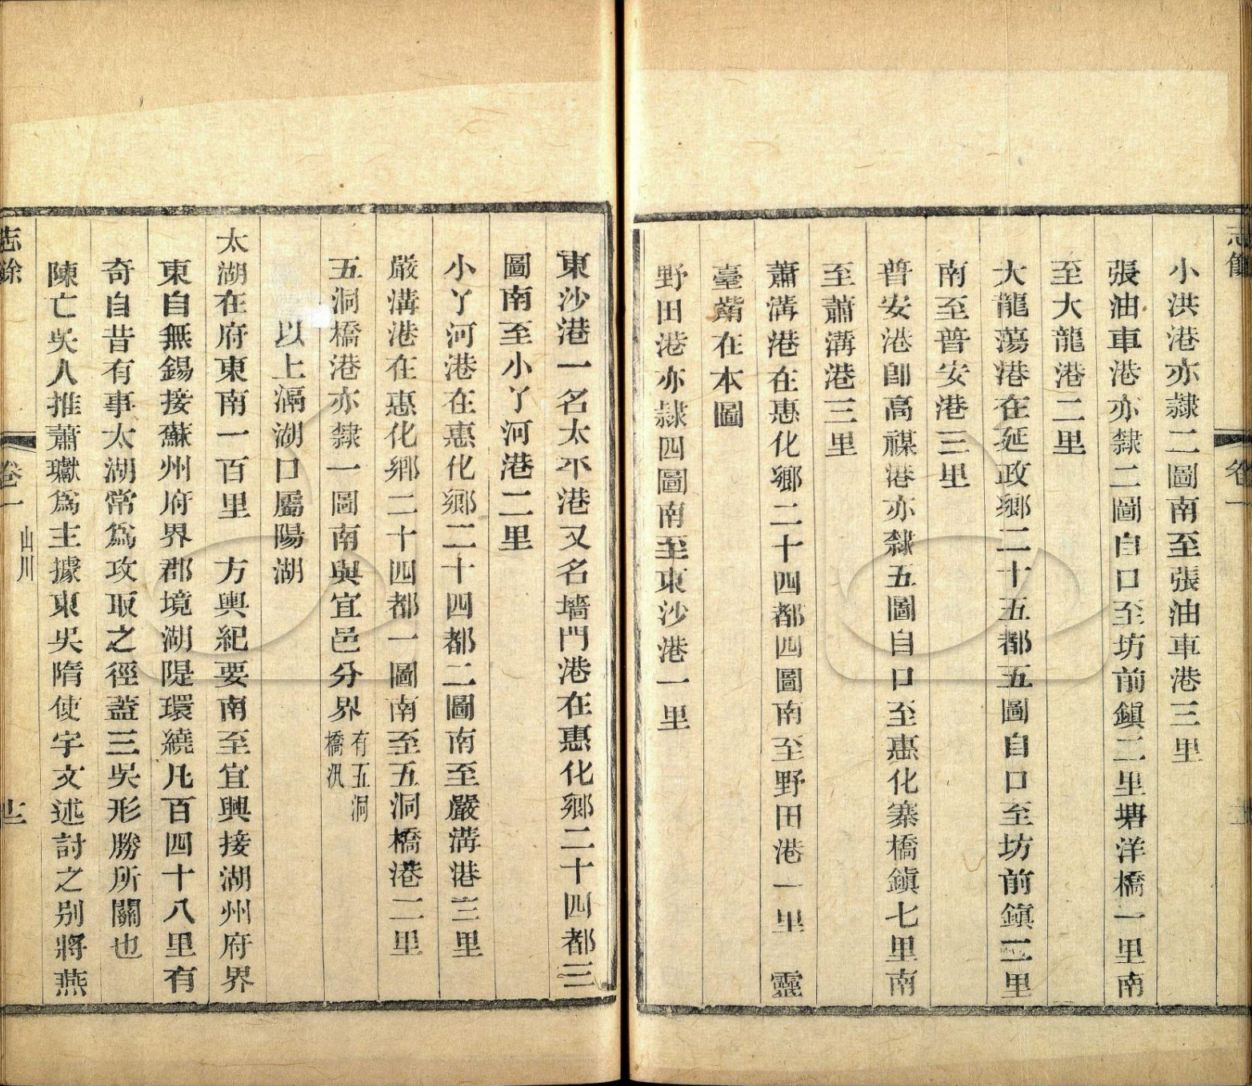 小洪港亦隸二圖南至張油車港三里
張油車港亦隸二圖自口至坊前鎮二里塘洋橋一里南
至大龍港二里
大龍蕩港在延政鄉二十五都五圖自口至坊前鎮三里
南至普安港三里
普安港卽高禖港亦隸五圖自口至惠化寨橋鎮七里南
至蕭溝港三里
蕭溝港在惠化鄉二十四都四圖南至野田港一里 靈
臺觜在本圖
野田港亦隸四圖南至東沙港一里
東沙港一名太平港又名墻門港在惠化鄉二十四都三
圖南至小丫河港二里
小丫河港在惠化鄉二十四都二圖南至嚴溝港三里
嚴溝港在惠化鄉二十四都一圖南至五洞橋港二里
五洞橋港亦隸一圖南與宜邑分界有五洞
橋汛
以上滆湖口屬陽湖
太湖在府東南一百里 方輿紀要南至宜興接湖州府界
東自無錫接蘇州府界郡境湖隄環繞凡百四十八里有
奇自昔有事太湖常爲攻取之徑蓋三吳形勝所關也
陳亡吳人推蕭瓛爲主據東吳隋使宇文述討之別將燕
志餘
卷一
山川